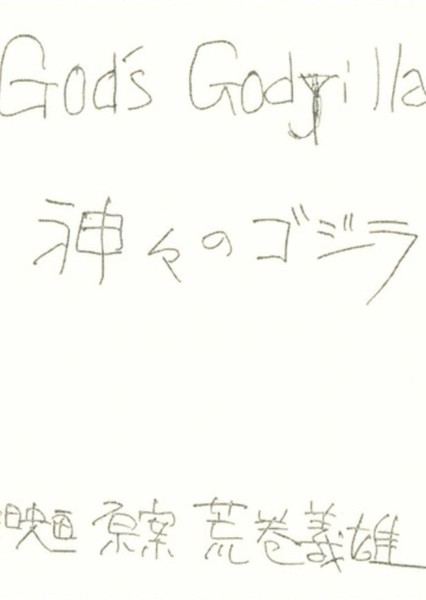 God's Godzilla
神々のゴジラ
映画 原案 荒巻義雄